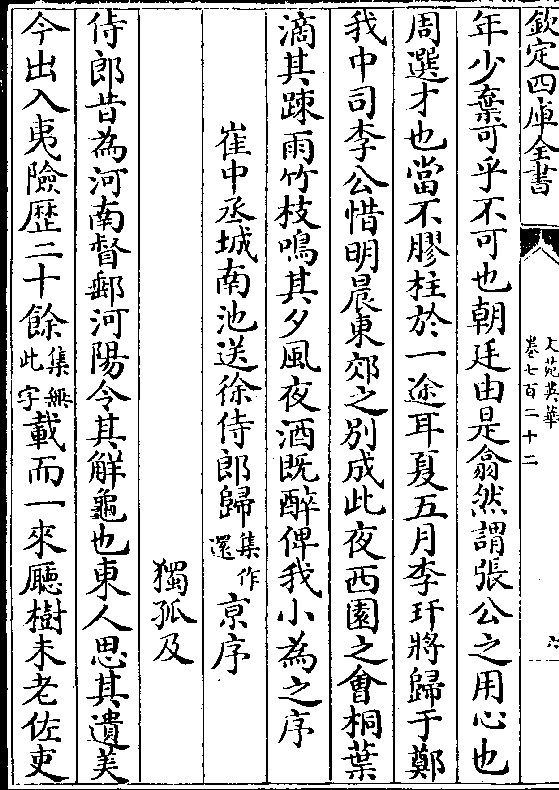 欽定四庫全書
文苑英華
卷七百二十二
年少棄可乎不可也朝廷由是翕然謂張公之用心也
周選才也當不膠柱於一途耳夏五月李玕將歸于鄭
我中司李公惜明晨東郊之別成此夜西園之會桐葉
滴其踈雨竹枝鳴其夕風夜酒既醉俾我小為之序
崔中丞城南池送徐侍郎歸集作還京序
獨孤及
侍郎昔為河南督郵河陽令其解龜也東人思其遺美
今出入夷險歷二十餘集無此字載而一來廳樹未老佐吏